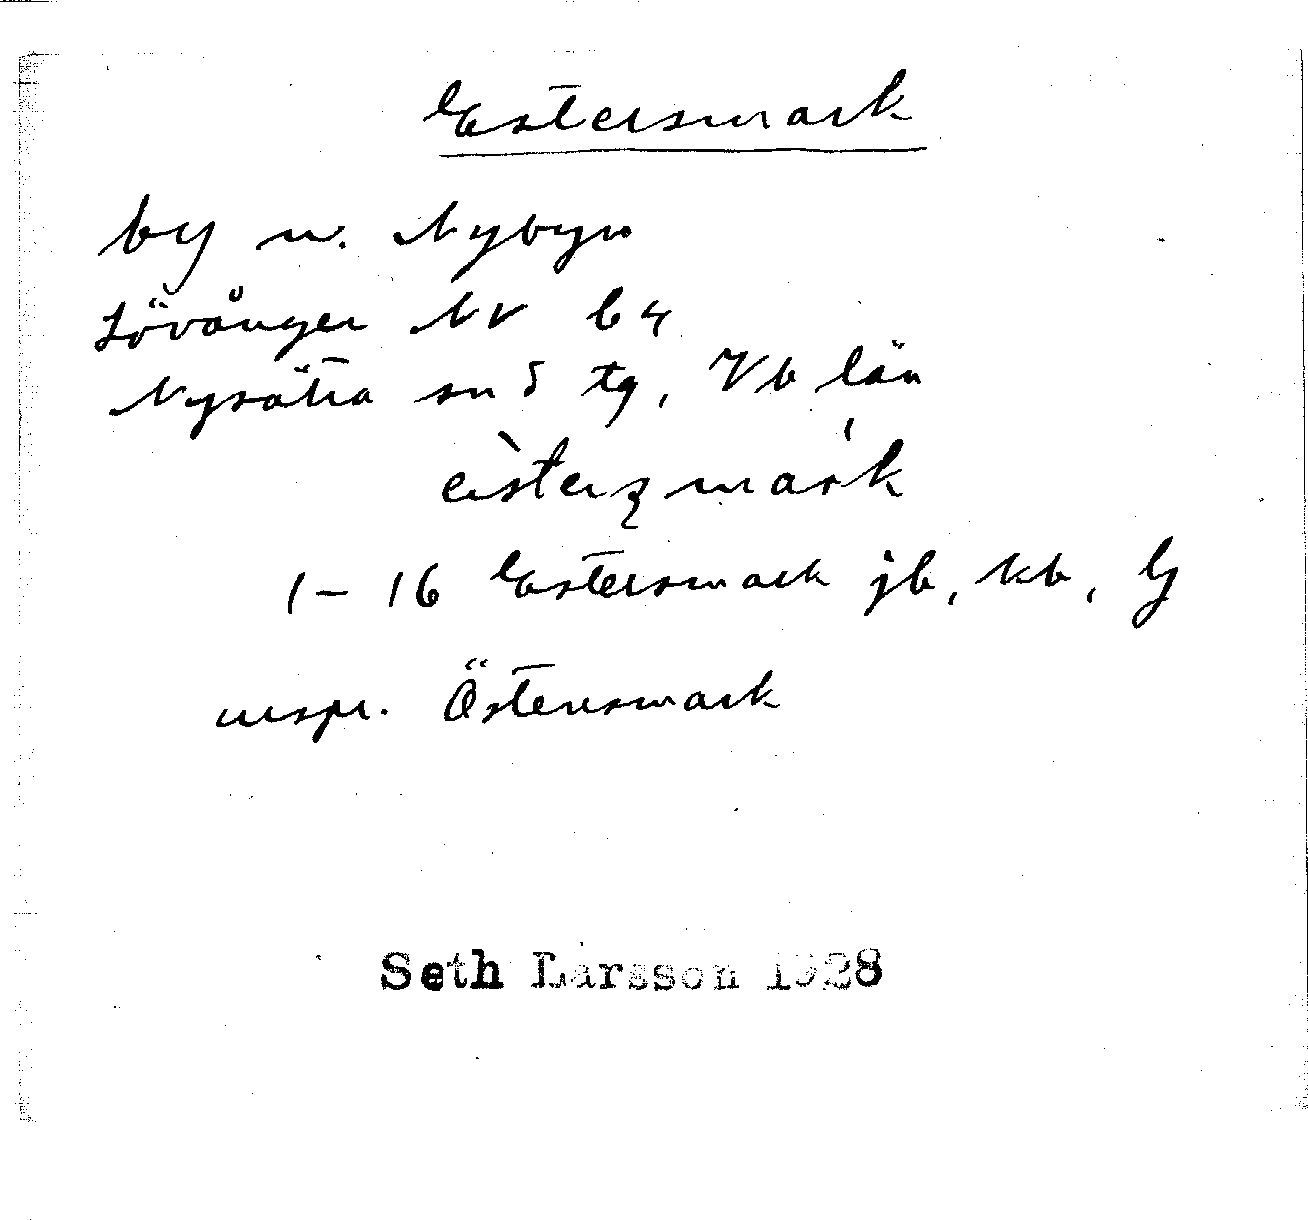 Estersmark
by n. Nybyn
Lövånger NV b4
Nysätra sn S tg, Vb län
èisterʂmar̀k
1–16 Estersmark jb, kb, Gj
urspr. Östersmark
Seth Larsson 1928